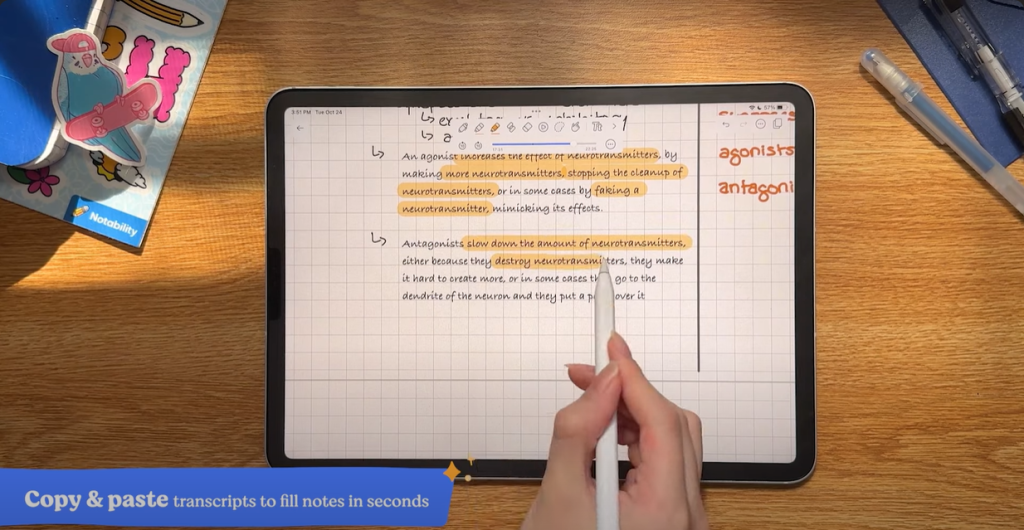 3:51 PM Tue Oct 24
57%
An agonist increases the effect of neurotransmitters, by
making more neurotransmitters, stopping the cleanup of
neurotransmitters, or in some cases by faking a
neurotransmitter, mimicking its effects.
Antagonists slow down the amount of neurotransmitters,
either because they destroy neurotransmitters, they make
it hard to create more, or in some cases go to the
dendrite of the neuron and they put a over it
agonists
antagoni
Notability
Copy & paste transcripts to fill notes in seconds